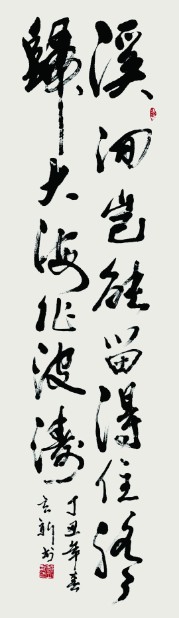 溪涧岂能留得住终
归大海作波涛
丁丑年春
言新书